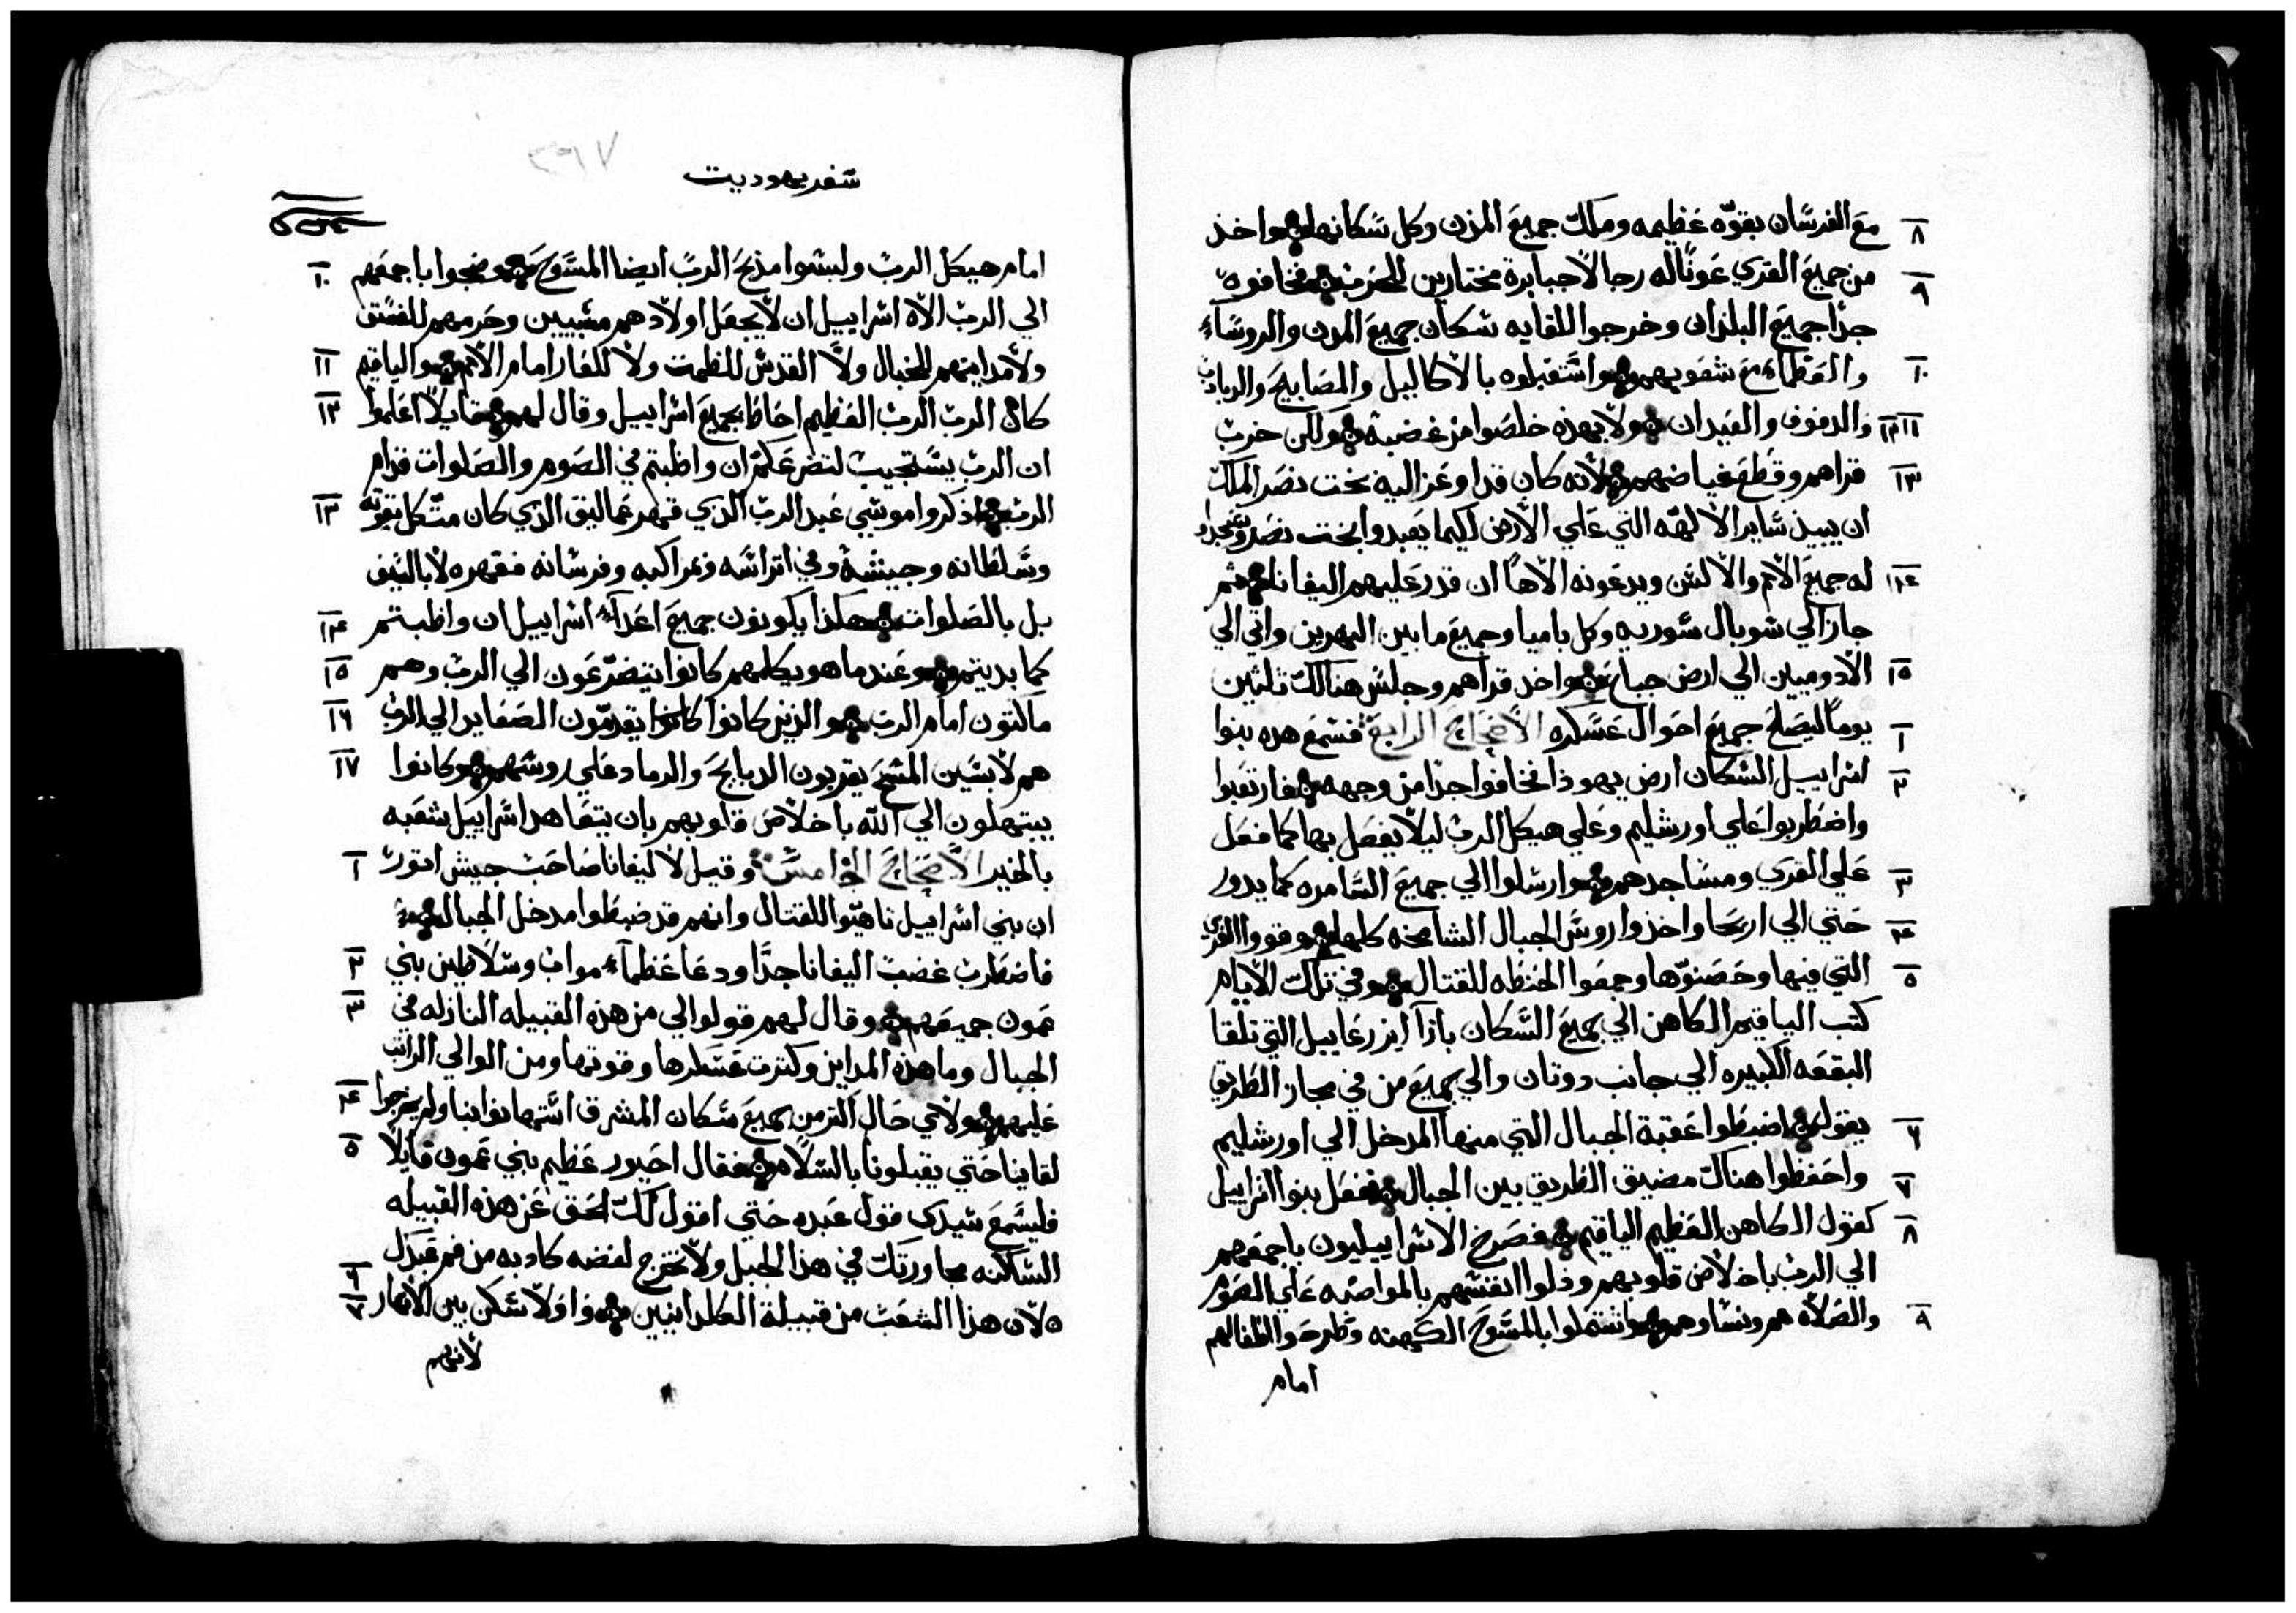 مع الفرسان بقوّه عظيمه وملك جميع المدن وكل سكانها واخذ ٨
من جميع القري عونًا له رجالاً جبابرة مختارين للحرب فخافوه ٩
جدًا جميع البلدان وخرجوا للقايه سكان جميع المدن والروساء
والعظماء مع شعوبهم واستقبلوه بالاكاليل والمصابيح والربابات ١٠
والدفوف والعيدان ولا بهذه خلصوا من غضبه ولكن خرب ١١ ١٢
قراهم وقطع غياضهم لانه كان قد اوعز اليه بخت نصر الملك ١٣
ان يبيد ساير الالهه التي علي الارض لكيما يعبدوا بخت نصر ويسجدوا
له جميع الامم والالسن ويدعونه الاهًا ان قدر عليهم اليفانا ثم ١٤
جاز الي شوبال سوريه وكل باميا وجميع ما بين النهرين واتي الي
الادوميين الي ارض جباع واخد قراهم وجلس هنالك تلتين ١٥
يومًا ليصلح جميع احوال عسكره الاصحاح الرابع فسمع هده بنوا ١
اسراييل السكان ارض يهوذا فخافوا جدًا من وجهه فارتعبوا ٢
واضطربوا علي اورشليم وعلي هيكل الرب ليلا يفعل بها كما فعل
علي القري ومساجدهم وارسلوا الي جميع السامره كما يدور ٣
حتي الي اريحا واخذوا روس الجبال الشامخه كلها وقووا القري ٤
التي فيها وحصنوها وجمعوا الحنطه للقتال وفي تلك الايام ٥
كتب الياقيم الكاهن الي جميع السكان بازا ايزرعاييل التي تلقا
البقعه الكبيره الي جانب دوتان والي جميع من في مجاز الطريق
بقوله اضبطوا عقبة الجبال التي منها المدخل الي اورشليم ٦
واحفظوا هناك مضيق الطريق بين الجبال ففعل بنوا اسراييل ٧
كقول الكاهن العظيم الياقيم فصرخ الاسراييليون باجمعهم ٨
الي الرب باخلاص قلوبهم وذلوا انفسهم بالمواصبه علي الصوم
والصلاه هم ونساوهم واشتملوا بالمسوح الكهنه وطرحوا اطفالهم ٩
امام
سفر يهوديت
امام هيكل الرب ولبسوا مذبح الرب ايضا المسوح وضجوا باجمعهم ١٠
الي الرب الاه اسراييل ان لا يجعل اولادهم مسبيين وحرمهم للفسق
ولا مداينهم للخبال ولا القدس للطمث ولا للعار امام الامم والياقيم ١١
كاهن الرب العظيم احاط بجميع اسراييل وقال لهم قايلاً اعلموا ١٢
ان الرب يستجيب لتضرعكم ان واظبتم في الصوم والصلوات قدام
الرب اذكروا موسي عبد الرب الذي قهر عماليق الذي كان متكل بقوته ١٣
وسلطانه وجيشه وفي اتراسه ومراكبه وفرسانه فقهره لا بالسيف
بل بالصلوات هكذا يكونون جميع اعداء اسراييل ان واظبتم ١٤
كما بديتم وعند ما هو يكلمهم كانوا يتضرعون الي الرب وهم ١٥
ماكتون امام الرب والذين كانوا كانوا يقدمون الصعايد الي الرب ١٦
هم لابسين المسح يقربون الدبايح والرماد علي روسهم وكانوا ١٧
يبتهلون الي الله باخلاص قلوبهم بان يتعاهد اسراييل شعبه
بالخير الاصحاح الخامس وقيل لاليفانا صاحب جيش اتور ١
ان بني اسراييل تاهيوا للقتال وانهم قد ضبطوا مدخل الجبال
فاضطرب غضب اليفانا جدًا ودعا عظماء مواب وسلاطين بني ٢
عمون جميعهم وقال لهم قولوا لي من هذه القبيله النازله في ٣
الجبال وما هذه المداين وكترت عسكرها وقوتها ومن الوالي الراتب
عليهم ولاي حال اكتر من جميع سكان المشرق استهانوا بنا ولم يخرجوا ٤
لقاينا حتي يقبلونا بالسلام فقال احيور عظيم بني عمون قايلاً ٥
فليسمع سيدي قول عبده حتي اقول لك الحق عن هذه القبيله
الساكنه مجاورتك في هذا الجبل ولا تخرج لفضه كادبه من فم عبدك
لان هذا الشعب من قبيلة الكلدانيين واولا سكن بين الانهار ٦ ٧
لانهم